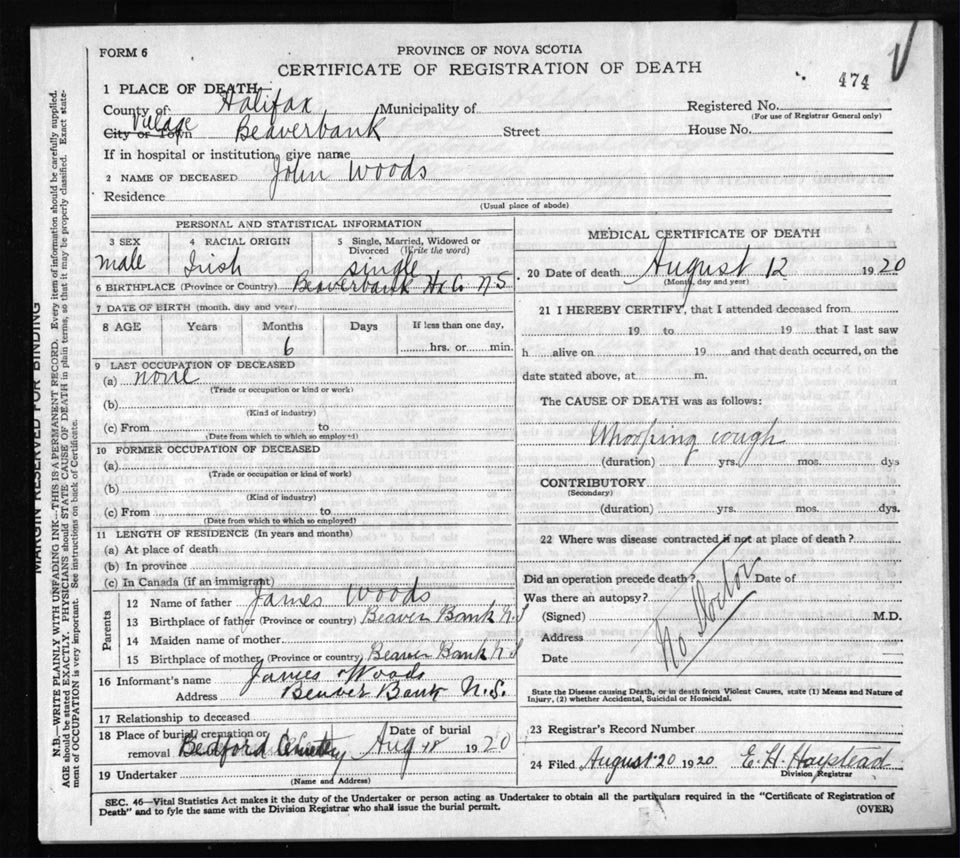 FORM 6
PROVINCE OF NOVA SCOTIA
CERTIFICATE OF REGISTRATION OF DEATH
474
1 PLACE OF DEATH—
County of Halifax Municipality of Registered No.
(For use of Registrar General only)
Village
City or Town Beaverbank Street House No.
If in hospital or institution, give name
2 NAME OF DECEASED John Woods
Residence
(Usual place of abode)
PERSONAL AND STATISTICAL INFORMATION
3 SEX 4 RACIAL ORIGIN 5 Single, Married, Widowed or Divorced (Write the word)
male Irish single
6 BIRTHPLACE (Province or Country) Beaverbank Hx Co N S
7 DATE OF BIRTH (month, day and year)
8 AGE Years Months Days If less than one day,
6 hrs. or min.
9 LAST OCCUPATION OF DECEASED
(a) none
(Trade or occupation or kind of work)
(b)
(Kind of industry)
(c) From to
(Date from which to which so employed)
10 FORMER OCCUPATION OF DECEASED
(a)
(Trade or occupation or kind of work)
(b)
(Kind of industry)
(c) From to
(Date from which to which so employed)
11 LENGTH OF RESIDENCE (In years and months)
(a) At place of death
(b) In province
(c) In Canada (if an immigrant)
Parents
12 Name of father James Woods
13 Birthplace of father (Province or country) Beaver Bank N.S
14 Maiden name of mother
15 Birthplace of mother (Province or country) Beaver Bank N S
16 Informant's name James Woods
Address Beaver Bank N.S.
17 Relationship to deceased
18 Place of burial, cremation or removal Bedford Cemetery Date of burial Aug 18 1920
19 Undertaker
(Name and Address)
MEDICAL CERTIFICATE OF DEATH
20 Date of death August 12 1920
(Month, day and year)
21 I HEREBY CERTIFY, that I attended deceased from
19 to 19 that I last saw
h alive on 19 and that death occurred, on the
date stated above, at m.
The CAUSE OF DEATH was as follows:
Whooping cough
(duration) yrs. mos. dys
CONTRIBUTORY
(Secondary)
(duration) yrs. mos. dys.
22 Where was disease contracted if not at place of death?
Did an operation precede death? Date of
Was there an autopsy?
(Signed) M.D.
Address
Date
No Doctor
State the Disease causing Death, or in death from Violent Causes, state (1) Means and Nature of
Injury, (2) whether Accidental, Suicidal or Homicidal.
23 Registrar's Record Number
24 Filed August 20 1920 E. H.
Division Registrar
SEC. 46—Vital Statistics Act makes it the duty of the Undertaker or person acting as Undertaker to obtain all the particulars required in the "Certificate of Registration of
Death" and to fyle the same with the Division Registrar who shall issue the burial permit. (OVER)
MARGIN RESERVED FOR BINDING
N.B.—WRITE PLAINLY WITH UNFADING INK—THIS IS A PERMANENT RECORD. Every item of information should be carefully supplied.
AGE should be stated EXACTLY. PHYSICIANS should STATE CAUSE OF DEATH in plain terms, so that it may be properly classified. Exact state-
ment of OCCUPATION is very important. See instructions on back of Certificate.